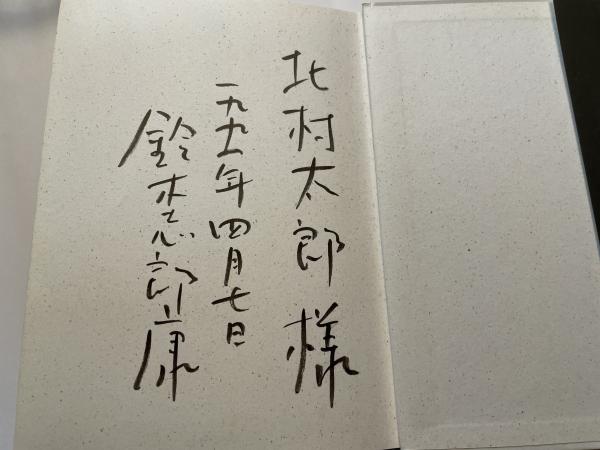 北村太郎様
一九九一年四月七日
鈴木志郎康